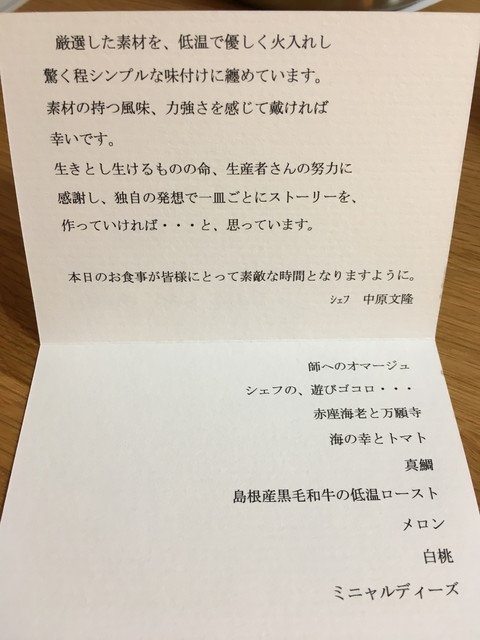 厳選した素材を、低温で優しく火入れし
驚く程シンプルな味付けに纏めています。
素材の持つ風味、力強さを感じて戴ければ
幸いです。
生きとし生けるものの命、生産者さんの努力に
感謝し、独自の発想で一皿ごとにストーリーを、
作っていければ・・・と、思っています。
本日のお食事が皆様にとって素敵な時間となりますように。
シェフ 中原文隆
師へのオマージュ
シェフの、遊びゴコロ・・・
赤座海老と万願寺
海の幸とトマト
真鯛
島根産黒毛和牛の低温ロースト
メロン
白桃
ミニャルディーズ